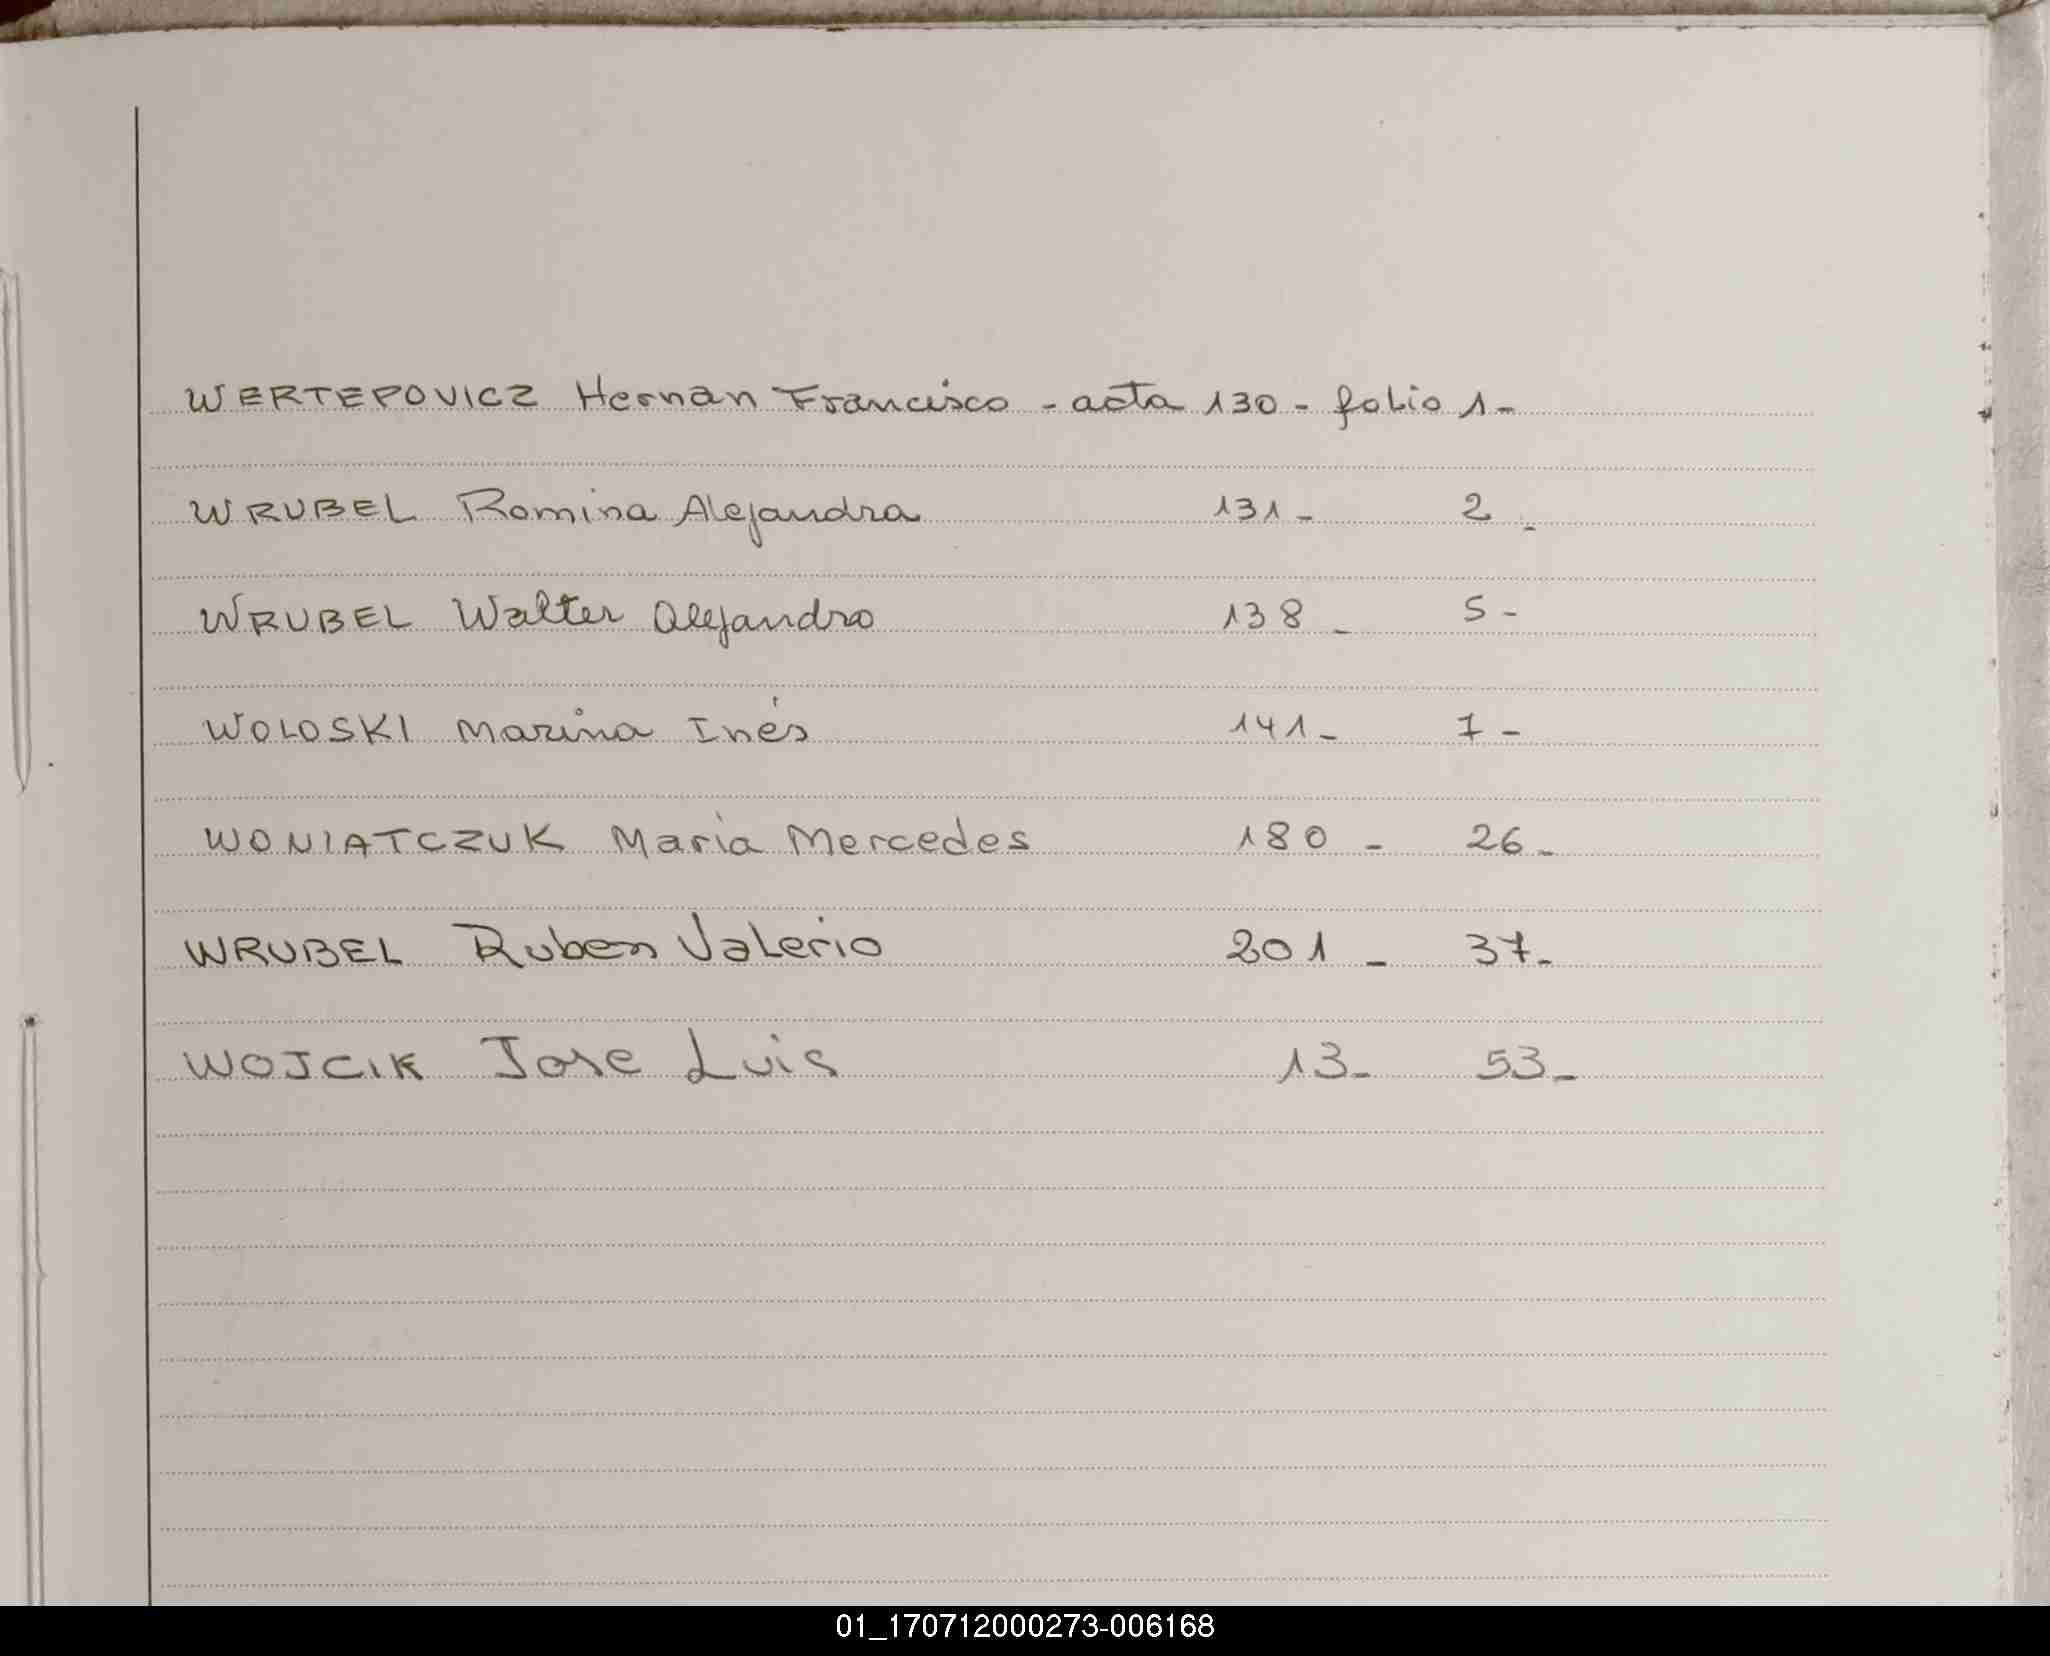 WERTEPOVICZ Hernan Francisco - acta 130 - folio 1-
WRUBEL Romina Alejandra 131 - 2 -
WRUBEL Walter Alejandro 138 - 5 -
WOLOSKI Marina Inés 141 - 7 -
WONIATCZUK María Mercedes 180 - 26 -
WRUBEL Ruben Valerio 201 - 37 -
WOJCIK Jose Luis 13 - 53 -
01_170712000273-006168